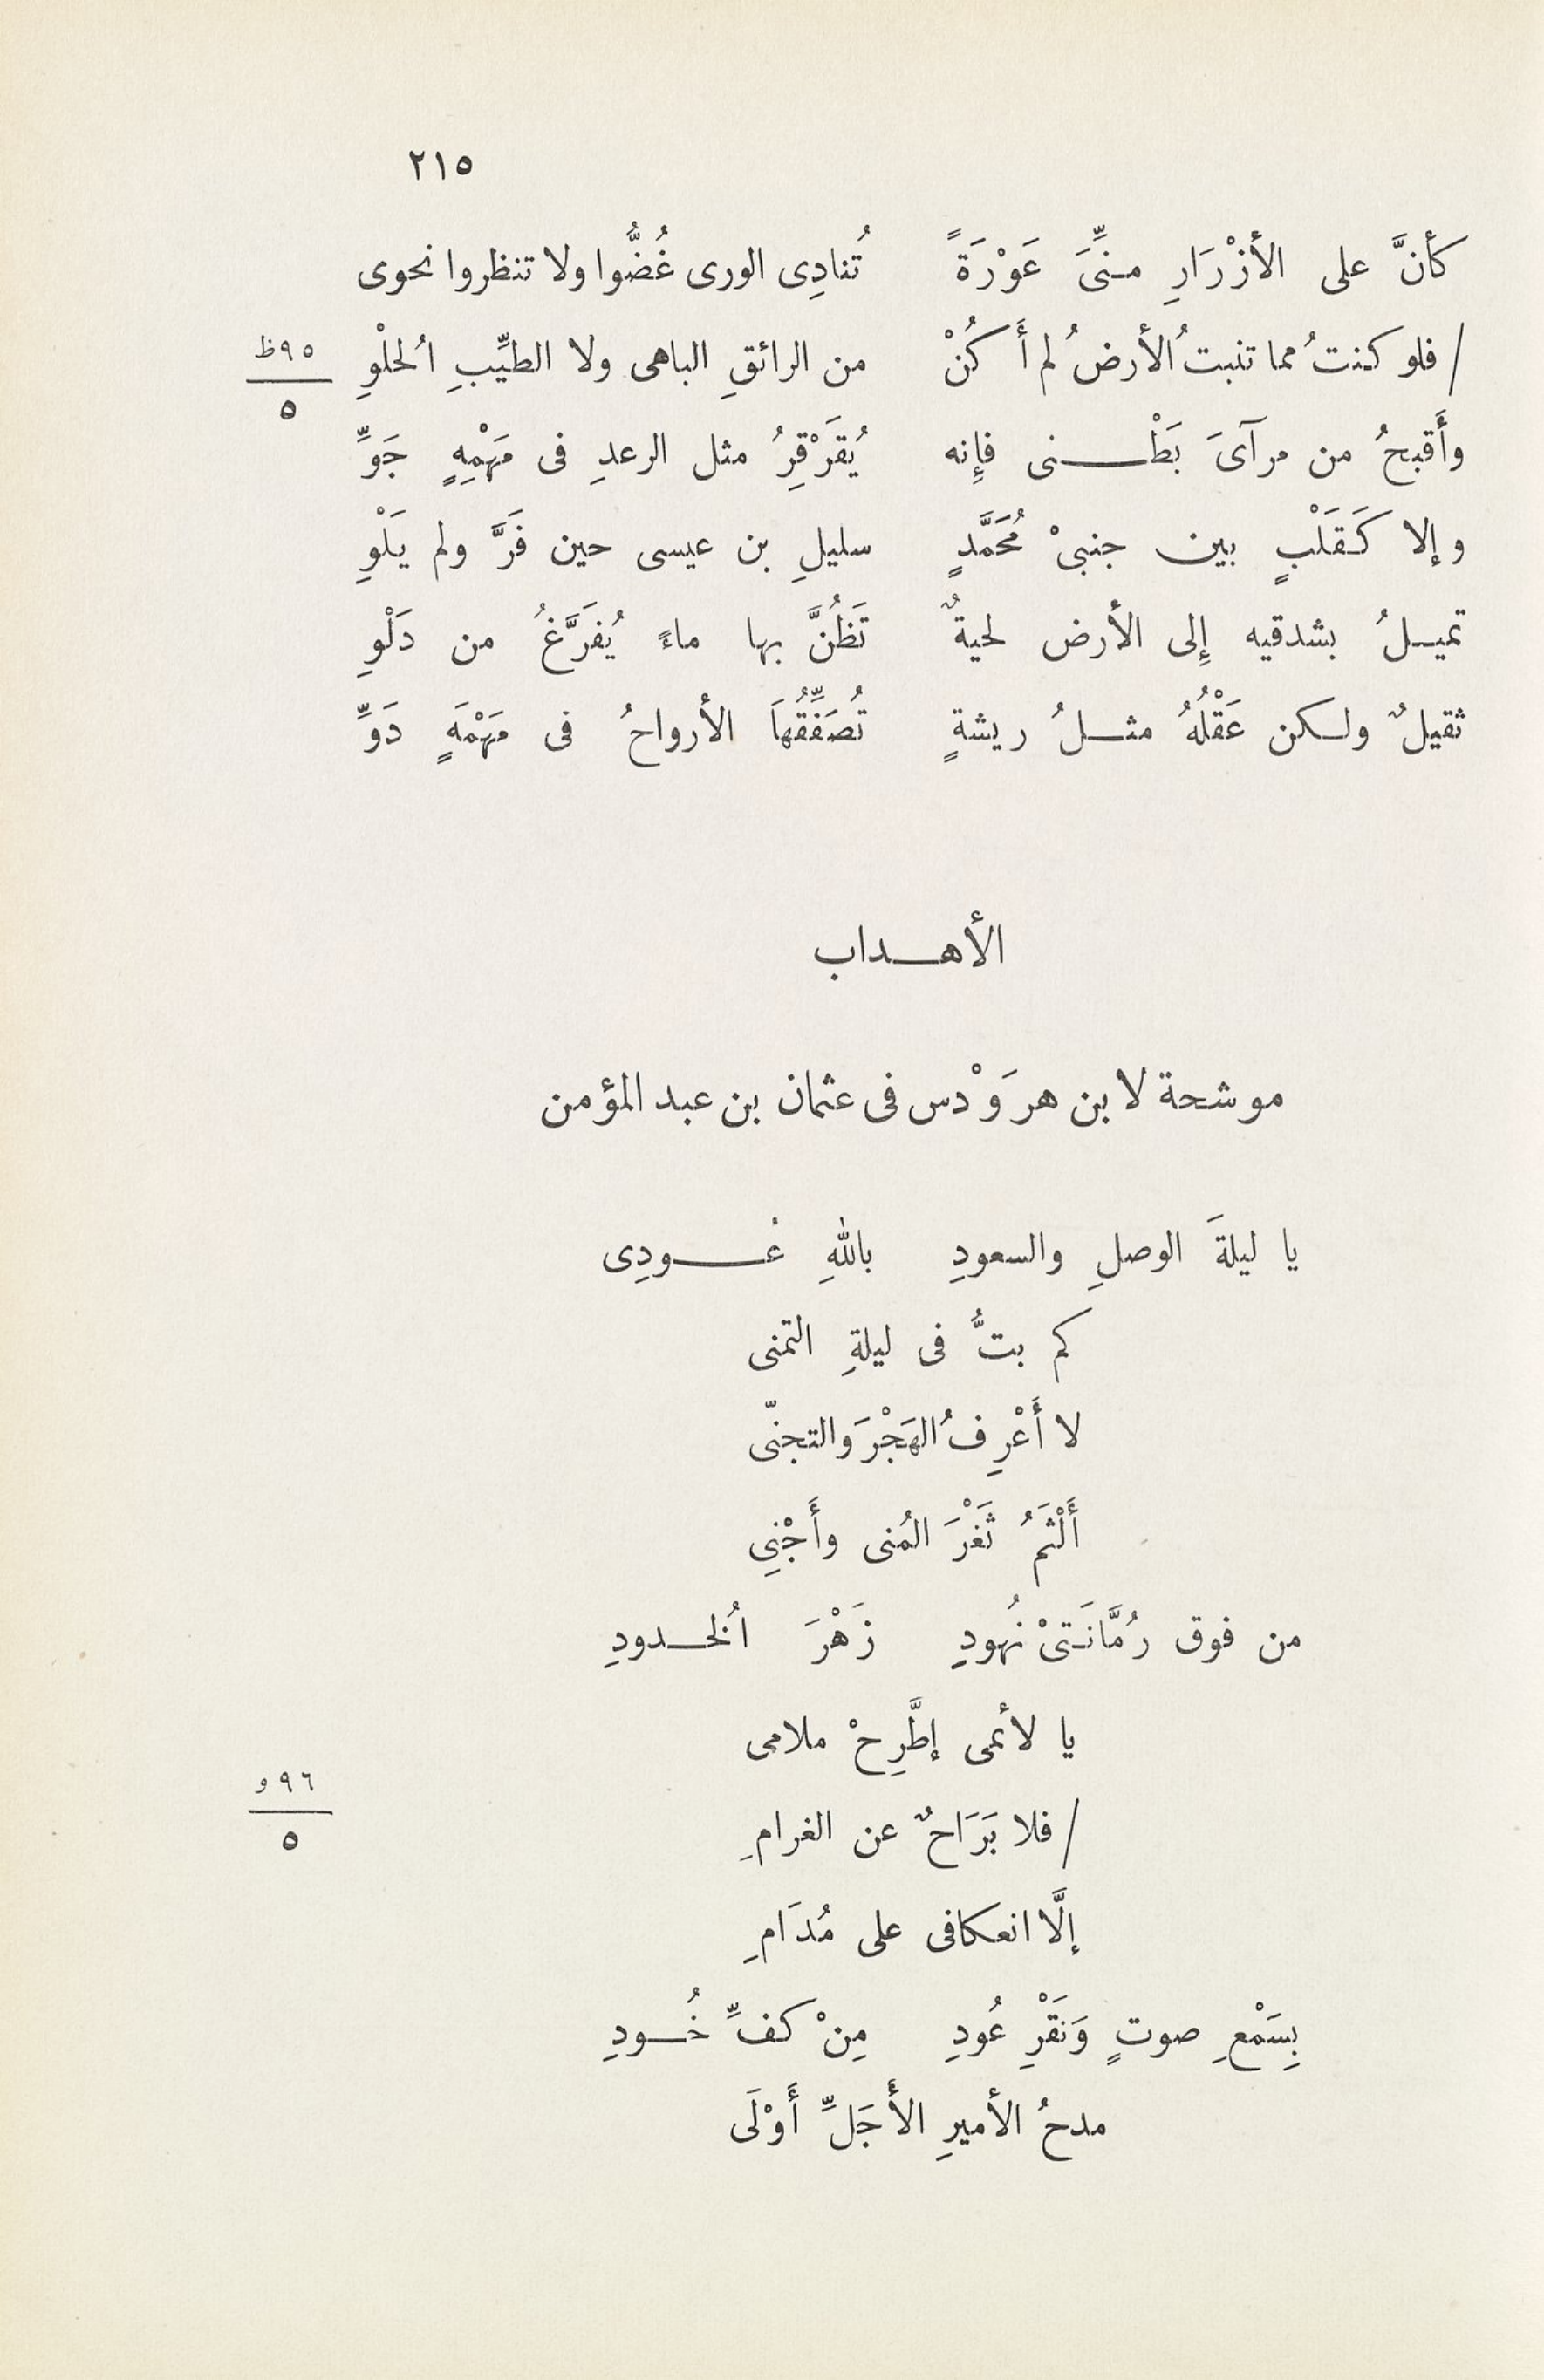 ٢١٥
كأنَّ على الأزْرَارِ منِّىَ عَوْرَةً تُنادِى الورى غُضُّوا ولا تنظروا نحوى
/ فلو كنتُ مما تنبتُ الأرضُ لم أَكُنْ من الرائقِ الباهى ولا الطيِّبِ الُحلْوِ ٩٥ظ
٥
وأَقبحُ من مرآىَ بَطْــنى فإِنه يُقَرْقِرُ مثل الرعدِ فى مَهْمِهٍ جَوِّ
وإلا كَقَلْبٍ بين جنبىْ مُحَمَّدٍ سليلِ بن عيسى حين فَرَّ ولم يَلْوِ
تميـلُ بشدقيه إِلى الأرض لحيةٌ تَظُنَّ بها ماءً يُفَرَّغُ من دَلْوِ
ثقيلٌ ولكن عَقْلُهُ مثـلُ ريشةٍ تُصَفِّقُهَا الأرواحُ فى مَهْمَهٍ دَوِّ
الأهــداب
موشحة لابن هرَوْدس فى عثمان بن عبد المؤمن
يا ليلةَ الوصلِ والسعودِ باللهِ عُــودِى
كم بتُّ فى ليلةِ التمنى
لا أَعْرِفُ الهَجْرَ والتجنّى
أَلْثَمُ ثَغْرَ المُنى وأَجْنِى
من فوق رُمَّانَتىْ نُهودِ زَهْرَ الُخـدودِ
يا لأئمى إطَّرِحْ ملامى
/ فلا بَرَاحٌ عن الغرامِ ٩٦و
٥
إلَّا انعكافى على مُدَامِ
بِسَمْعِ صوتٍ وَنَقْرِ عُودِ مِنْ كفِّ خُـودِ
مدحُ الأميرِ الأَجَلِّ أَوْلَى